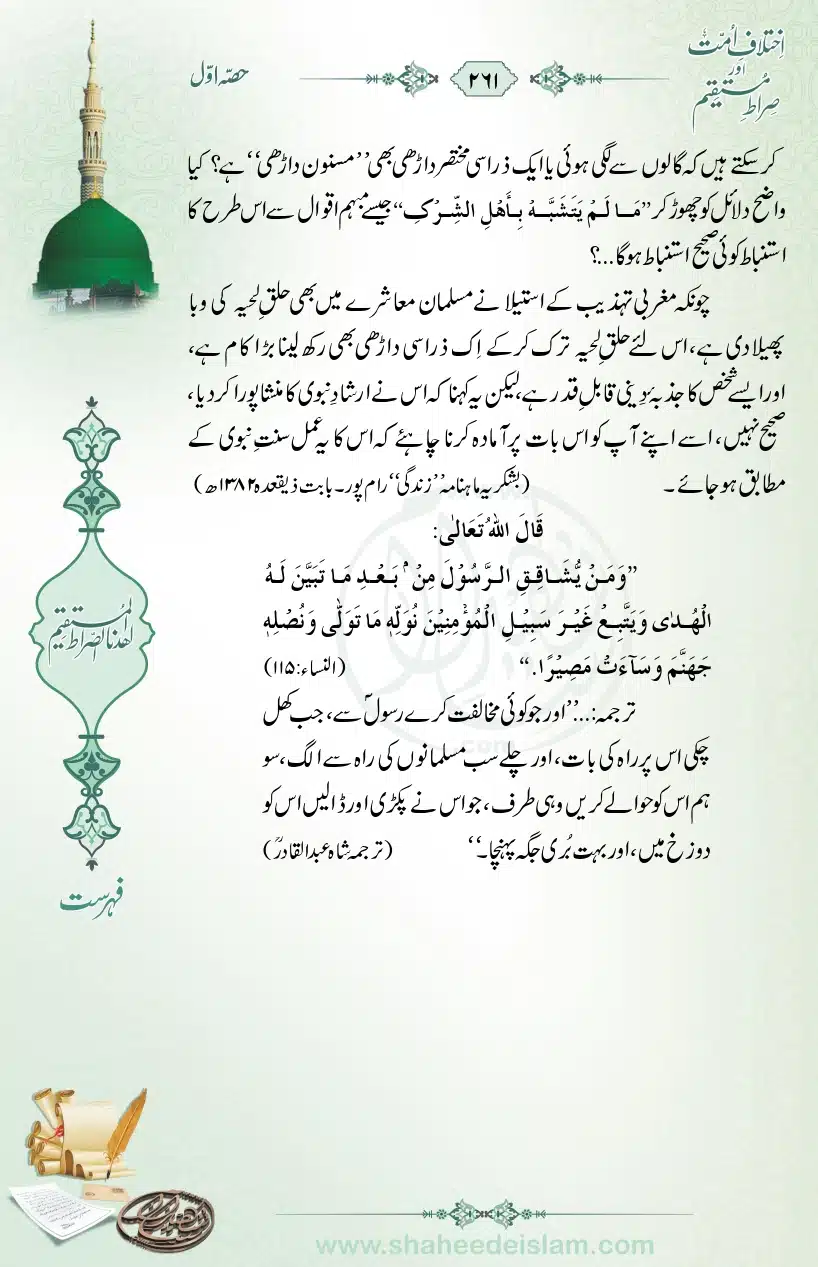 اِختلافِ اُمّت
اور
صراطِ مستقیم
۲۶۱
حصّہ اوّل
کرسکتے ہیں کہ گالوں سے لگی ہوئی یا ایک ذراسی مختصر داڑھی بھی ’’مسنون داڑھی‘‘ ہے؟ کیا
واضح دلائل کو چھوڑ کر ’’مَا لَمْ یَتَشَبَّہْ بِأَھْلِ الشِّرْکِ‘‘ جیسے مبہم اقوال سے اس طرح کا
استنباط کوئی صحیح استنباط ہوگا...؟
چونکہ مغربی تہذیب کے استیلا نے مسلمان معاشرے میں بھی حلقِ لحیہ کی وبا
پھیلا دی ہے، اس لئے حلقِ لحیہ ترک کرکے اِک ذراسی داڑھی بھی رکھ لینا بڑا کام ہے،
اور ایسے شخص کا جذبۂ دِینی قابلِ قدر ہے، لیکن یہ کہنا کہ اس نے ارشادِ نبوی کا منشا پورا کردیا،
صحیح نہیں، اسے اپنے آپ کو اس بات پر آمادہ کرنا چاہئے کہ اس کا یہ عمل سنتِ نبوی کے
مطابق ہوجائے۔ (بشکریہ ماہنامہ ’’زندگی‘‘ رام پور۔ بابت ذیقعدہ ۱۳۸۲ھ)
قَالَ اللهُ تَعَالٰی:
’’وَمَنْ یُّشَاقِقِ الرَّسُوْلَ مِنْۢ بَعْدِ مَا تَبَیَّنَ لَهُ
الْهُدٰی وَیَتَّبِعْ غَیْرَ سَبِیْلِ الْمُؤْمِنِیْنَ نُوَلِّهٖ مَا تَوَلّٰی وَنُصْلِهٖ
جَهَنَّمَ وَسَآءَتْ مَصِیْرًا.‘‘ (النساء:۱۱۵)
ترجمہ:...’’اور جو کوئی مخالفت کرے رسولؐ سے، جب کھل
چکی اس پر راہ کی بات، اور چلے سب مسلمانوں کی راہ سے الگ، سو
ہم اس کو حوالے کریں وہی طرف، جو اس نے پکڑی اور ڈالیں اس کو
دوزخ میں، اور بہت بُری جگہ پہنچا۔‘‘ (ترجمہ شاہ عبدالقادرؒ)
اھدنا الصراط المستقیم
فہرست
www.shaheedeislam.com